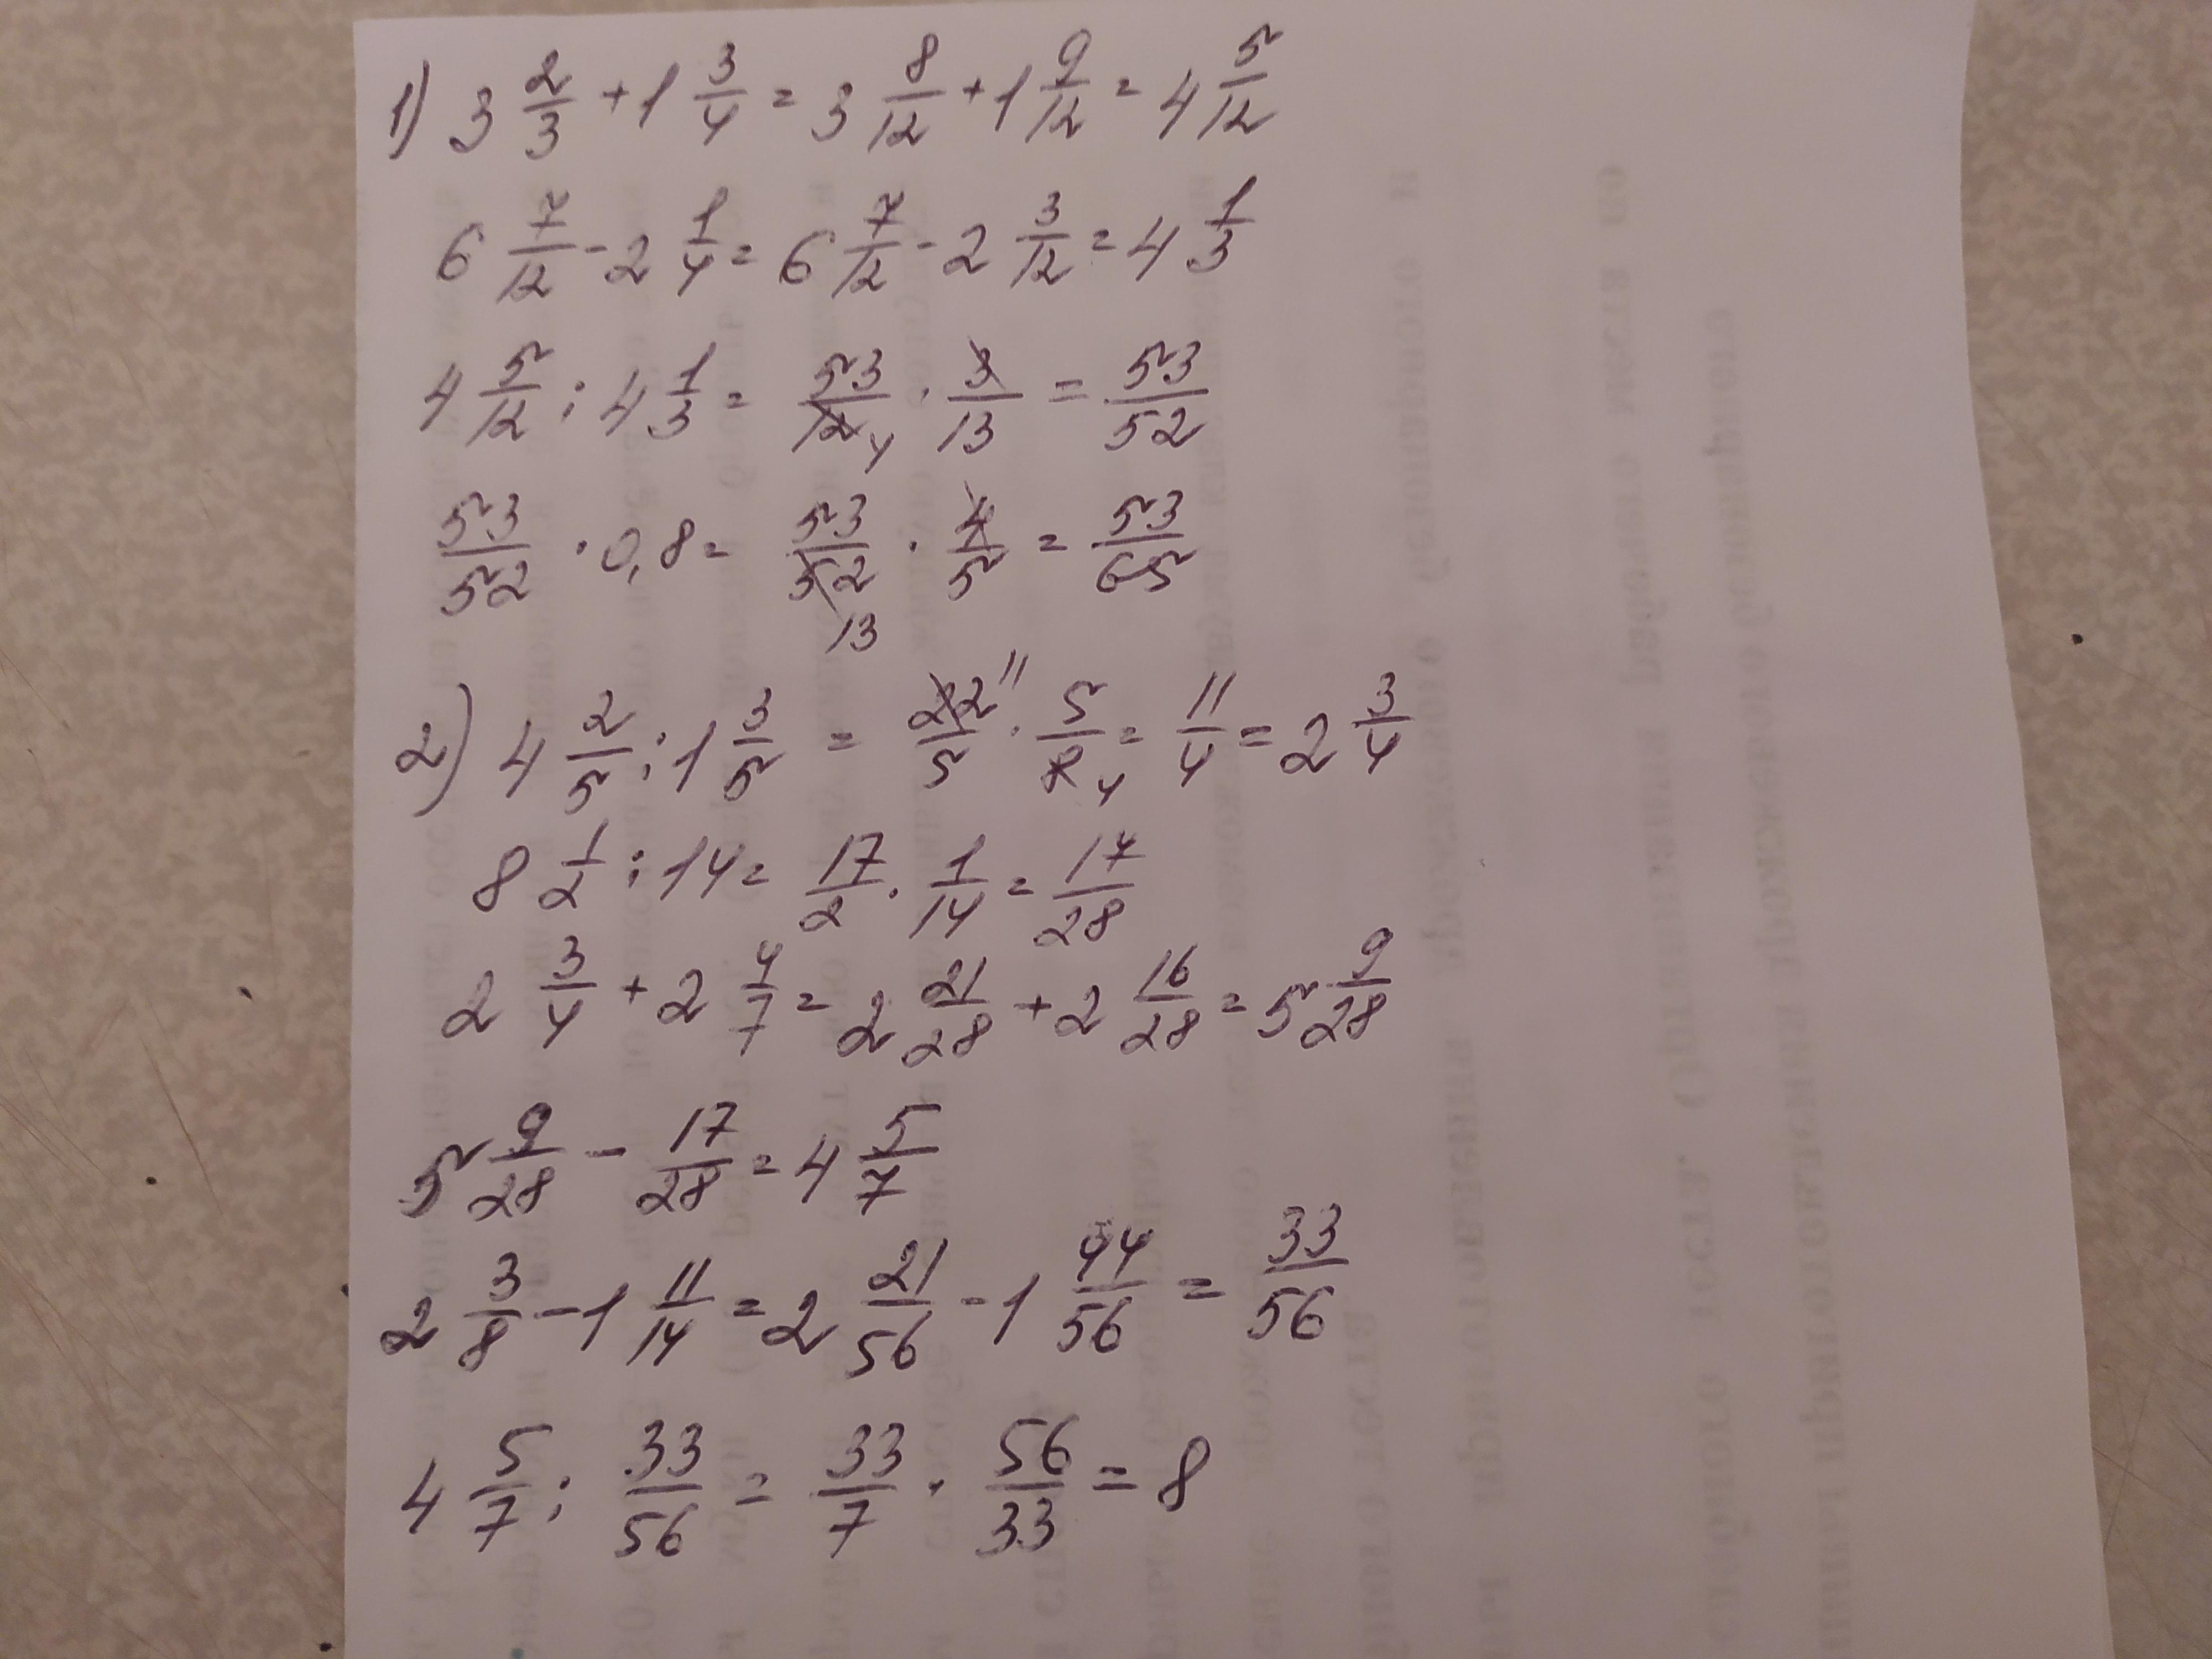 1) 3 2/3 + 1 3/4 = 3 8/12 + 1 9/12 = 4 5/12
6 7/12 - 2 1/4 = 6 7/12 - 2 3/12 = 4 1/3
4 5/12 : 4 1/3 = 53/12 4 · 3/13 = 53/52
53/52 · 0,8 = 53/52 13 · 4/5 = 53/65
2) 4 2/5 : 1 3/5 = 22 11/5 · 5/8 4 = 11/4 = 2 3/4
8 1/2 : 14 = 17/2 · 1/14 = 17/28
2 3/4 + 2 4/7 = 2 21/28 + 2 16/28 = 5 9/28
5 9/28 - 17/28 = 4 5/7
2 3/8 - 1 11/14 = 2 21/56 - 1 44/56 = 33/56
4 5/7 : 33/56 = 33/7 · 56/33 = 8